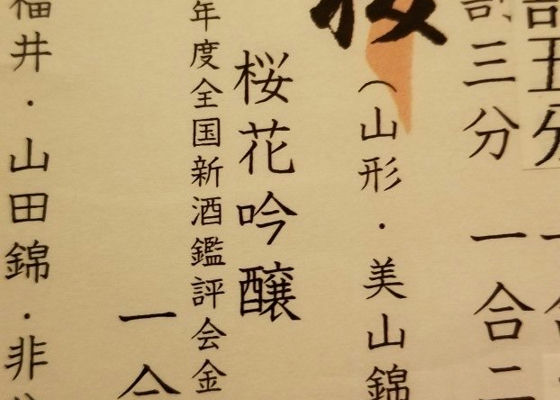 五分 一
三分 一合二
（山形・美山錦
桜花吟醸
年度全国新酒鑑評会金
一合
福井・山田錦・非